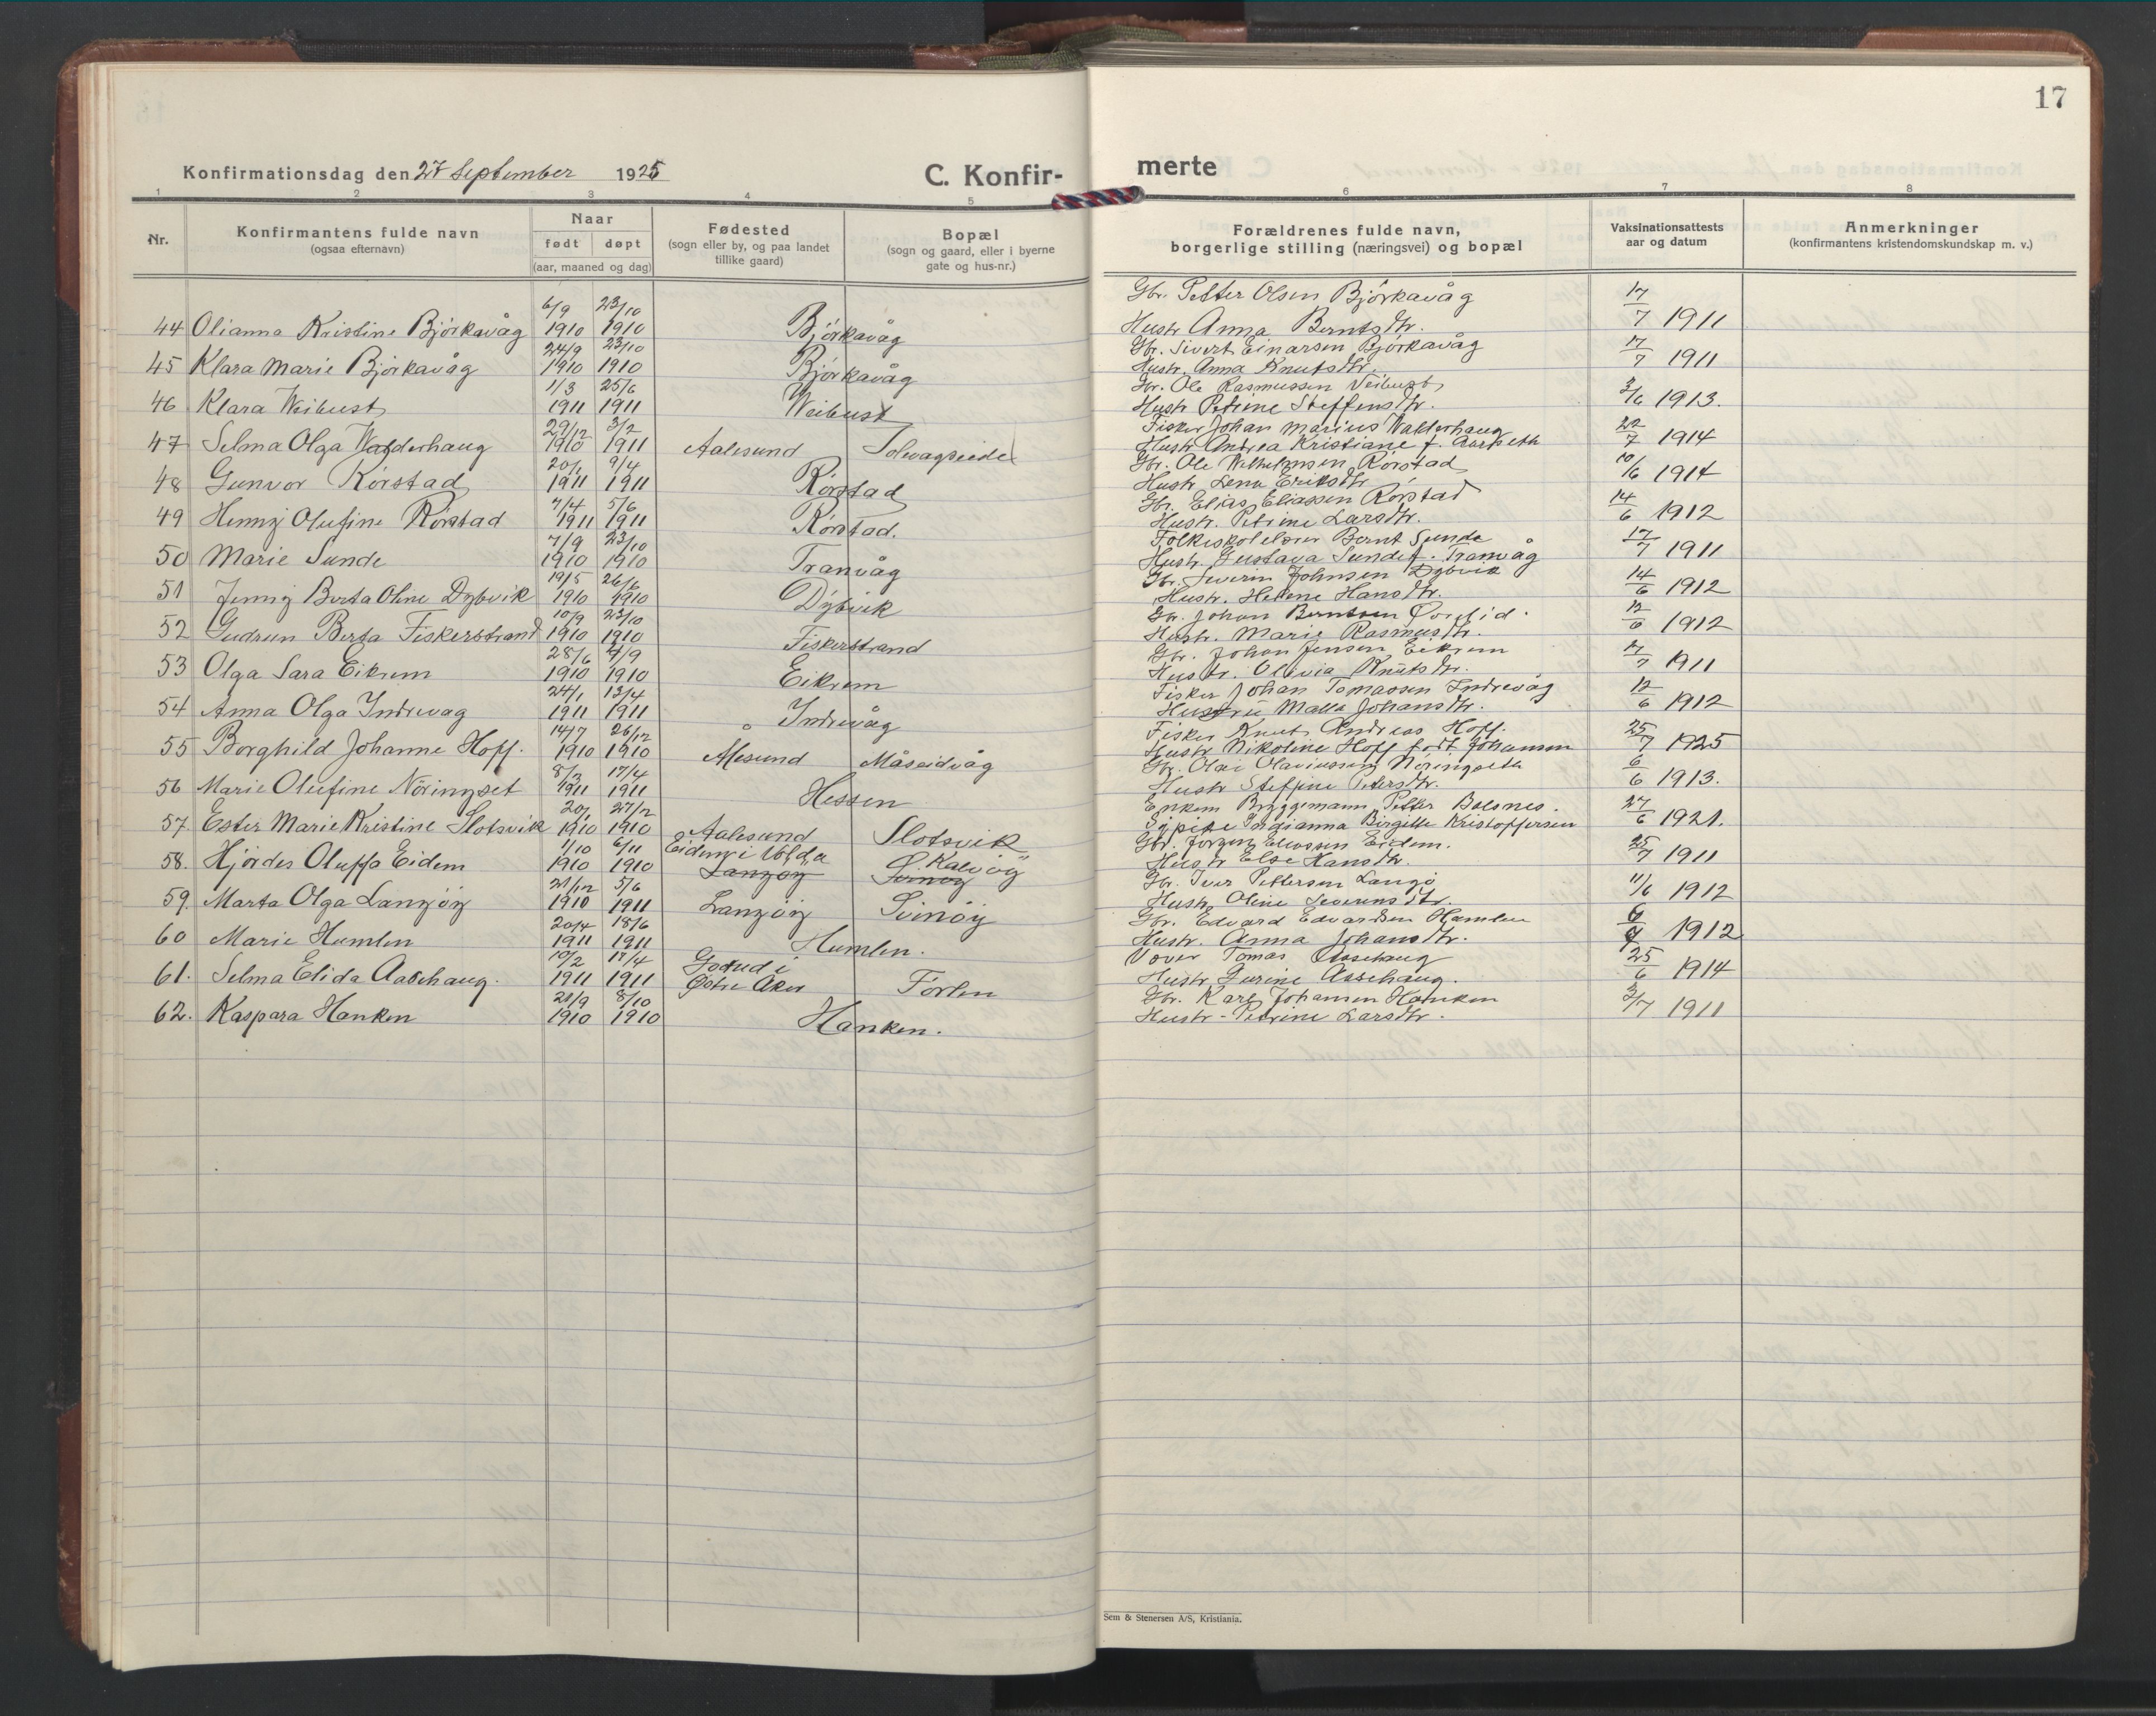 17
Konfirmationsdag den 27 September 1925
C. Konfir-
merte
1 2 3 4 5 6 7 8
Nr.
Konfirmantens fulde navn
(ogsaa efternavn)
Naar
født døpt
(aar, maaned og dag)
Fødested
(sogn eller by, og paa landet
tillike gaard)
Bopæl
(sogn og gaard, eller i byerne
gate og hus-nr.)
Forældrenes fulde navn,
borgerlige stilling (næringsvei) og bopæl
Vaksinationsattests
aar og datum
Anmerkninger
(konfirmantens kristendomskundskap m. v.)
6/9 23/10 Gbr. Petter Olsen Bjørkavåg 17
44 Olianna Kristine Bjørkavåg 1910 1910 Bjørkavåg Hustr Anna Berntsdtr. 7 1911
24/9 23/10 Gbr. Sivert Einarsen Bjørkavåg 17
45 Klara Marie Bjørkavåg 1910 1910 Bjørkavåg Hustr. Anna Knutsdtr. 7 1911
1/3 25/6 Gbr. Ole Rasmussen Veibust
46 Klara Weibust 1911 1911 Weibust Hustr Petrine Steffensdtr. 3/6 1913.
29/12 3/2 Fisker Johan Marius Walderhaug 22
47 Selma Olga Walderhaug 1910 1911 Aalesund Solvagseide Hustr Andrea Kristiane f. Aarseth 7 1914
20/1 9/4 Gbr. Ole Wilhelmsen Rørstad
48 Gunvor Rørstad 1911 1911 Rørstad Hustr Lena Eriksdtr 10/6 1914
7/4 5/6 Gbr. Elias Eliassen Rørstad 14
49 Henny Olufine Rørstad 1911 1911 Rørstad. Hustr. Petrine Larsdtr. 6 1912
7/9 23/10 Folkeskolelærer Bernt Sunde 17
50 Marie Sunde 1910 1910 Tranvåg Hustr Gustava Sunde f. Tranvåg 7 1911
19/5 26/6 Gbr. Severin Johnsen Dybvik 14
51 Jenny Berta Oline Dybvik 1910 1910 Dybvik Hustr. Helene Hansdtr. 6 1912
10/9 23/10 Gbr. Johan Berntsen 12
52 Gudrun Berta Fiskerstrand 1910 1910 Fiskerstrand Hustr. Marie Rasmusdtr. 6 1912
28/6 4/9 Gbr. Johan Jensen Eikrem 17
53 Olga Sara Eikrem 1910 1910 Eikrem Hustr. Olivia Knutsdtr. 7 1911
24/1 13/4 Fisker Johan Tomassen Indrevåg 12
54 Anna Olga Indrevag 1911 1911 Indrevåg Hustru Malla Johansdtr. 6 1912
14/7 26/12 Fisker Knut Andreas Hoff. 25
55 Borghild Johanne Hoff. 1910 1910 Ålesund Måseidvåg Hustr Nikoline Hoff født Johansen 7 1925
8/3 17/4 Gbr. Olai Olaviussen Nøringseth 6
56 Marie Olufine Nöringset 1911 1911 Hessen Hustr Steffine Petersdtr. 6 1913.
20/1 27/12 Enkem Bryggemann Petter Bolsnes. 27
57. Ester Marie Kristine Slotsvik 1910 1910 Aalesund Slotsvik Ingianna Birgitte Kristoffersen 6 1921.
1/10 6/11 Eidem i Volda Kalvöy Gbr. Jørgen Eliassen Eidem. 25
58. Hjördes Oluffa Eidem 1910 1910 Langöy Svinöy Hustr Else Hansdtr. 7 1911
21/12 5/6 Gbr. Iver Pettersen Langö
59. Marta Olga Langöy 1910 1911 Langöy Svinöy Hustr Oline Severinsdtr. 11/6 1912
20/4 18/6 Gbr. Edvard Edvardsen Humlen 6
60 Marie Humlen 1911 1911 Humlen. Hustr. Anna Johansdtr. 7 1912
10/2 17/4 Gotud i Vover Tomas Aasehaug 25
61. Selma Elida Aasehaug. 1911 1911 Østre Aker Förlen Hustr Gurine Aasehaug. 6 1914
21/9 8/10 Gbr. Karl Johansen Hanken
62. Kaspara Hanken 1910 1910 Hanken. Hustr - Petrine Larsdtr. 3/7 1911
Sem & Stenersen A/S, Kristiania.